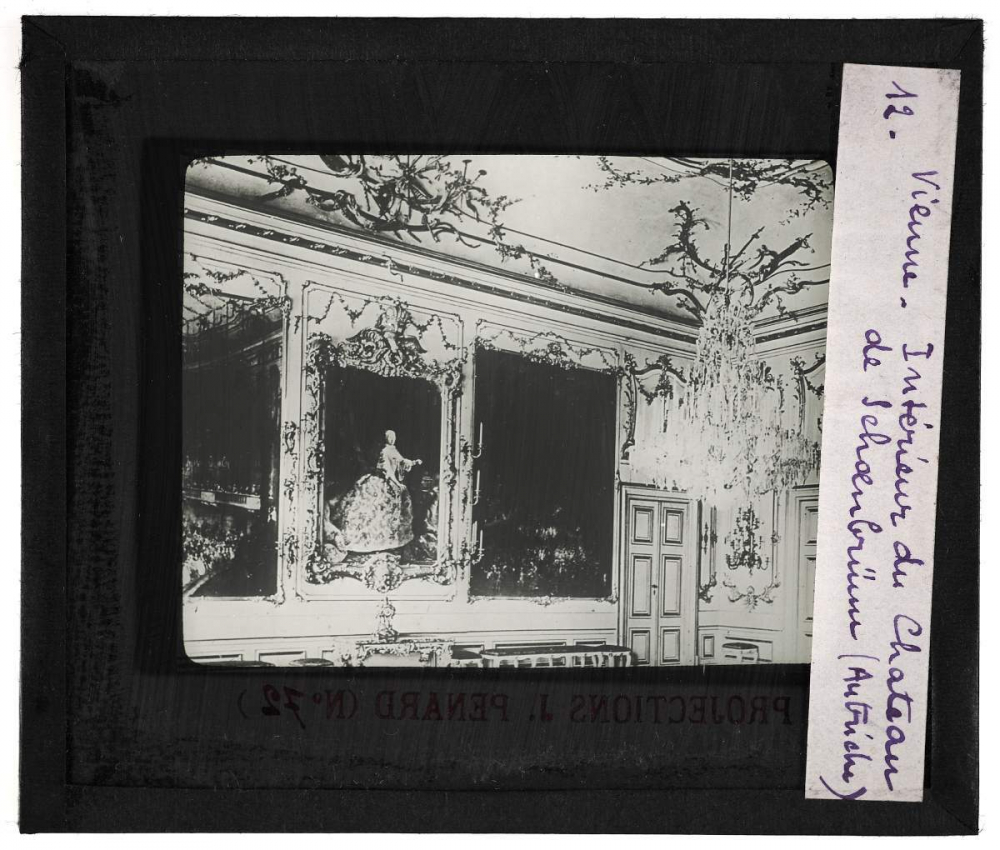 12. Vienne. Intérieur du Chateau
de Schœnbrünn (Autriche)
PROJECTIONS J. PENARD (Nº 72)